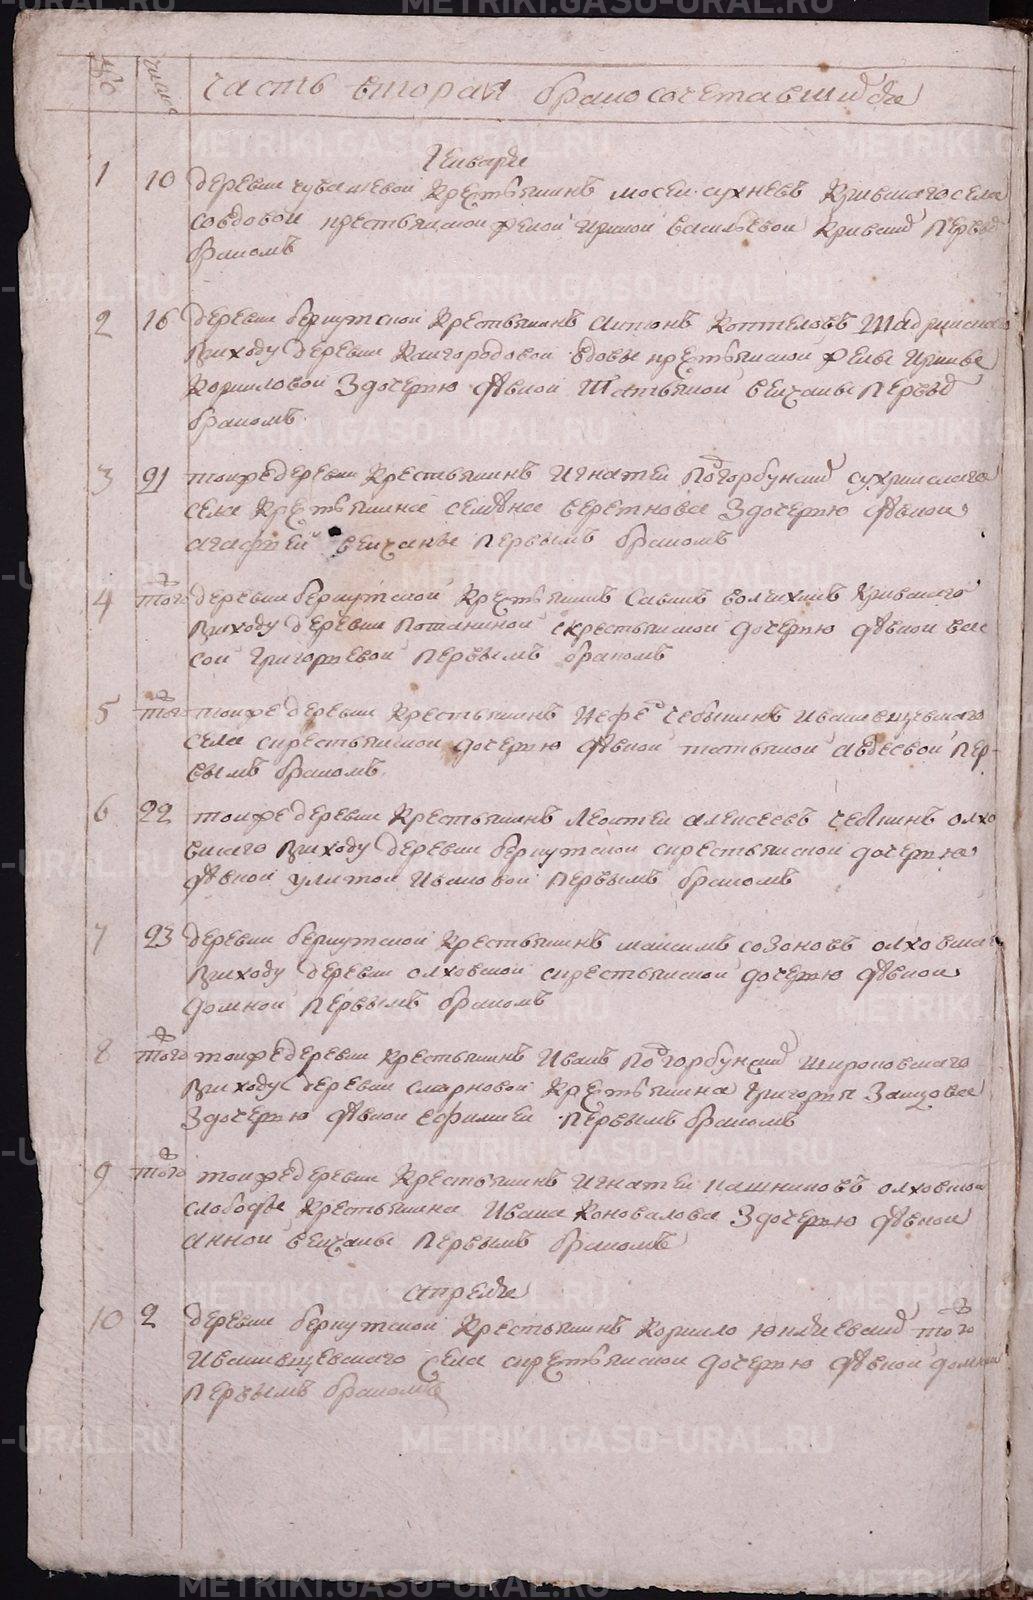 часть вторая бракосочетавшихся
Генваря
1 10 деревни чувашевой крестьянинъ мосеи сухневъ кривскаго села
со вдовой крестьянской женой ириной васильевой кривскихъ первымъ
бракомъ
2 16 деревни беркутской крестьянинъ антонъ коптеловъ Шадринскаго
приходу деревни кайгородовой вдовы крестьянской жены иринье
корниловой здочерью девкой Татьяной венчаны первымъ
бракомъ
3 21 тоижъ деревни крестьянинъ игнатеи подгорбунскихъ сухринскаго
села крестьянина веретнова здочерью девкой
агафьей венчаны первымъ бракомъ
4 того деревни беркутской крестьянинъ савинъ волчихинъ кривскаго
приходу деревни потаниной с крестьянской дочерью девкой вас
сой григорьевой первымъ бракомъ
5 того тоижъ деревни крестьянинъ чебыкинъ иванищевскаго
села скрестьянской дочерью девкой татьяной авдеевой пер-
вымъ бракомъ
6 22 тоижъ деревни крестьянинъ леонтеи алексеевъ олхо
вскаго приходу деревни беркутской скрестьянской дочерью
девкой улитой ивановой первымъ бракомъ
7 23 деревни беркутской крестьянинъ максимъ созоновъ олховска
приходу деревни олховской скрестьянской дочерью девкой
домной первымъ бракомъ
8 того тоижъ деревни крестьянинъ иванъ подгорбунскихъ широковскаго
приходу деревни смирновой крестьянина григорья заицова
здочерью девкой первымъ бракомъ
9 того тоижъ деревни крестьянинъ игнатеи пашниковъ олховской
слободы крестьянина ивана коновалова здочерью девкой
анной венчаны первымъ бракомъ
апреля
10 2 деревни беркутской крестьянинъ корнило того
иванищевскаго села скрестьянской дочерью девкой домной
первымъ бракомъ
METRIKI.GASO-URAL.RU